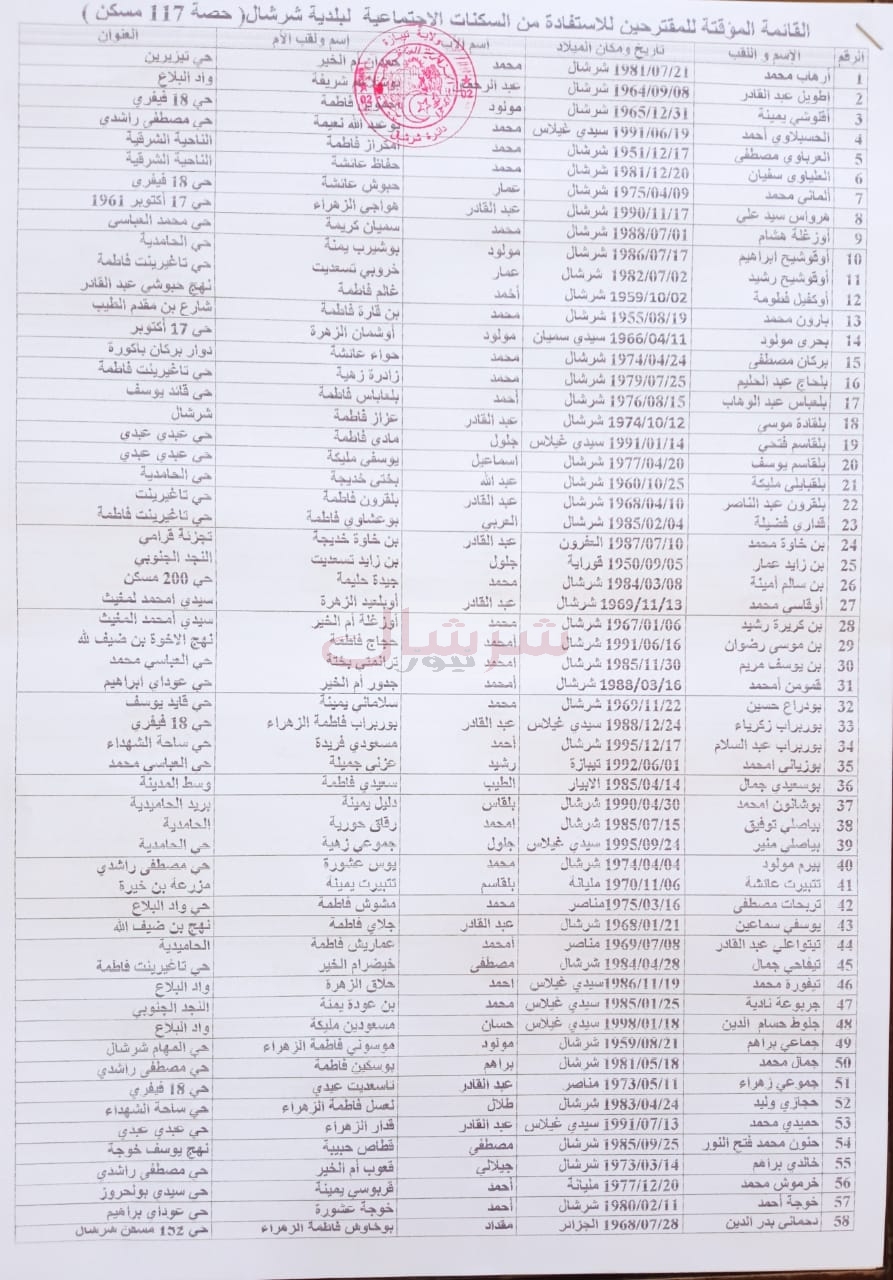 القائمة المؤقتة للمقترحين للاستفادة من السكنات الاجتماعية لبلدية شرشال( حصة 117 مسكن )
الرقم الاسم و اللقب تاريخ ومكان الميلاد اسم الأب اسم ولقب الأم العنوان
1 أرهاب محمد 1981/07/21 شرشال محمد أم الخير حي تيزيرين
2 أطويل عبد القادر 1964/09/08 شرشال عبد الرحمن شريفة واد البلاع
3 أقلوشي يمينة 1965/12/31 شرشال مولود فاطمة حي 18 فيفري
4 الحسيلاوي أحمد 1991/06/19 سيدي غيلاس محمد بوعبد الله نعيمة حي مصطفى راشدي
5 العرباوي مصطفى 1951/12/17 شرشال محمد أمكراز فاطمة الناحية الشرقية
6 العلياوي سفيان 1981/12/20 شرشال محمد حفاظ عائشة الناحية الشرقية
7 ألماني محمد 1975/04/09 شرشال عمار حبوش عائشة حي 18 فيفري
8 هرواس سيد علي 1990/11/17 شرشال عبد القادر هواجي الزهراء حي 17 أكتوبر 1961
9 أوزغلة هشام 1988/07/01 شرشال محمد سميان كريمة حي محمد العباسي
10 أوقوشيح ابراهيم 1986/07/17 شرشال مولود بوشيرب يمنة حي الحامدية
11 أوقوشيح رشيد 1982/07/02 شرشال عمار خروبي تسعديت حي تاغيرينت فاطمة
12 أوكفيل فطومة 1959/10/02 شرشال أحمد غالم فاطمة نهج حبوشي عبد القادر
13 بارون محمد 1955/08/19 شرشال محمد بن قارة فاطمة شارع بن مقدم الطيب
14 بحري مولود 1966/04/11 سيدي سميان مولود أوشمان الزهرة حي 17 أكتوبر
15 بركان مصطفى 1974/04/24 شرشال محمد حواء عائشة دوار بركان باكورة
16 بلحاج عبد الحليم 1979/07/25 شرشال محمد زادرة زهية حي تاغيرينت فاطمة
17 بلعباس عبد الوهاب 1976/08/15 شرشال أحمد بلعاباس فاطمة حي قائد يوسف
18 بلقادة موسى 1974/10/12 شرشال عبد القادر عزاز فاطمة شرشال
19 بلقاسم فتحي 1991/01/14 سيدي غيلاس جلول مادي فاطمة حي عبدي عبدي
20 بلقاسم يوسف 1977/04/20 شرشال اسماعيل يوسفي مليكة حي عبدي عبدي
21 بلقبايلي مليكة 1960/10/25 شرشال عبد الله بختي خديجة حي الحامدية
22 بلقرون عبد الناصر 1968/04/10 شرشال عبد القادر بلقرون فاطمة حي تاغيرينت
23 قداري فضيلة 1985/02/04 شرشال العربي بوعشاوي فاطمة حي تاغيرينت فاطمة
24 بن خاوة محمد 1987/07/10 العفرون عبد القادر بن خاوة خديجة تجزئة قرامي
25 بن زايد عمار 1950/09/05 قوراية جلول بن زايد تسعديت النجد الجنوبي
26 بن سالم أمينة 1984/03/08 شرشال محمد جيدة حليمة حي 200 مسكن
27 أوقاسي محمد 1969/11/13 شرشال عبد القادر أوبلعيد الزهرة سيدي امحمد لمغيث
28 بن كريرة رشيد 1967/01/06 شرشال محمد أوزغلة أم الخير سيدي أمحمد المغيث
29 بن موسى رضوان 1991/06/16 شرشال أمحمد حجاج فاطمة نهج الاخوة بن ضيف لله
30 بن يوسف مريم 1985/11/30 شرشال أمحمد بختة حي العباسي محمد
31 قمومن أمحمد 1988/03/16 شرشال أمحمد جدور أم الخير حي عوداي ابراهيم
32 بودراع حسين 1969/11/22 شرشال محمد سلاماني يمينة حي قايد يوسف
33 بوربراب زكرياء 1988/12/24 سيدي غيلاس عبد القادر بوربراب فاطمة الزهراء حي 18 فيفري
34 بوربراب عبد السلام 1995/12/17 شرشال أحمد مسعودي فريدة حي ساحة الشهداء
35 بوزياني امحمد 1992/06/01 تيبازة رشيد عزني جميلة حي العباسي محمد
36 بوسعيدي جمال 1985/04/14 الابيار الطيب سعيدي فاطمة وسط المدينة
37 بوشاتون امحمد 1990/04/30 شرشال بلقاس دليل يمينة بريد الحاميدية
38 بياصلي توفيق 1985/07/15 شرشال امحمد رقاق حورية الحامدية
39 بياصلي منير 1995/09/24 سيدي غيلاس جلول جموعي زهية حي الحامدية
40 بيرم مولود 1974/04/04 شرشال محمد يوس عشورة حي مصطفى راشدي
41 تتبيرت عائشة 1970/11/06 مليانة بلقاسم تتبيرت يمينة مزرعة بن خيرة
42 تربحات مصطفى 1975/03/16مناصر محمد مشوش فاطمة حي واد البلاع
43 يوسفي سماعين 1968/01/21 شرشال عبد القادر جلاي فاطمة نهج بن ضيف الله
44 تيتواعلي عبد القادر 1969/07/08 مناصر أمحمد عماريش فاطمة الحاميدية
45 تيفاحي جمال 1984/04/28 شرشال مصطفى خيضرام الخير حي تاغيرينت فاطمة
46 تيفورة محمد 1986/11/19سيدي غيلاس احمد حلاق الزهرة واد البلاع
47 جربوعة نادية 1985/01/25 سيدي غيلاس محمد بن عودة يمنة النجد الجنوبي
48 جلوط حسام الدين 1998/01/18 سيدي غيلاس حسان مسعودين مليكة واد البلاع
49 جماعي براهم 1959/08/21 شرشال مولود موسوني فاطمة الزهراء حي المهام شرشال
50 جمال محمد 1981/05/18 شرشال براهم بوسكين فاطمة حي مصطفى راشدي
51 جموعي زهراء 1973/05/11 مناصر عبد القادر ناسعديت عيدي حي 18 فيفري
52 حجازي وليد 1983/04/24 شرشال طلال نعسل فاطمة الزهراء حي ساحة الشهداء
53 حميدي محمد 1991/07/13 سيدي غيلاس عبد القادر قدار الزهراء حي عبدي عبدي
54 حنون محمد فتح النور 1985/09/25 شرشال مصطفى قطاص حبيبة نهج يوسف خوجة
55 خالدي براهم 1973/03/14 شرشال جيلالي قعوب أم الخير حي مصطفى راشدي
56 خرموش محمد 1977/12/20 مليانة أحمد قربوسي يمينة حي سيدي بونحروز
57 خوجة أحمد 1980/02/11 شرشال أحمد خوجة عشورة حي عوداي براهيم
58 دحماني بدر الدين 1968/07/28 الجزائر مقداد بوخاوش فاطمة الزهراء حي 152 مسكن شرشال
شرشال
نيوز